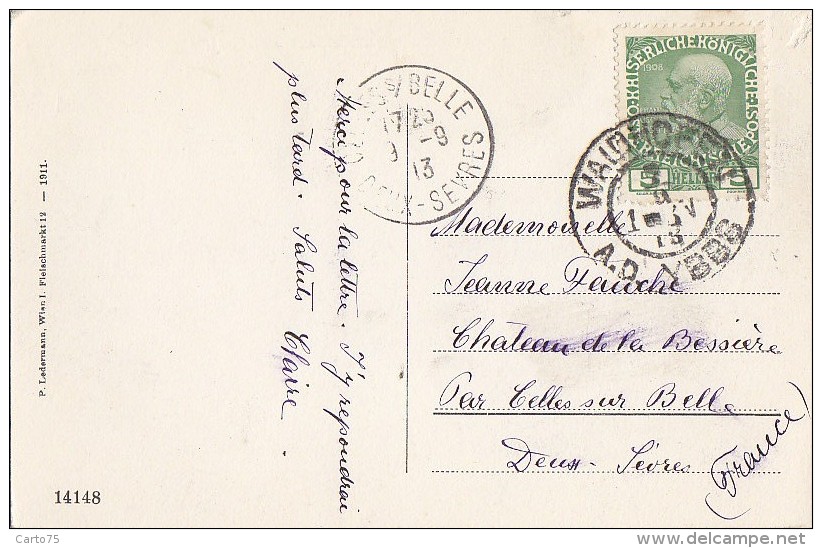 Merci pour la lettre. J'y repondrai
plus tard. Saluts Claire.
P. Ledermann, Wien I. Fleischmarkt 12 — 1911.
14148
S/BELLE
17 9
9 13
DEUX-SEVRES
KAISERLICHE KÖNIGLICHE
1908
5 HELLER 5
WAIDHOFEN
A.D. YBBS
Mademoiselle
Jeanne Fauche
Chateau de la Bessière
Par Celles sur Belle
Deux-Sèvres
(France)
Carto75
delcampe.net